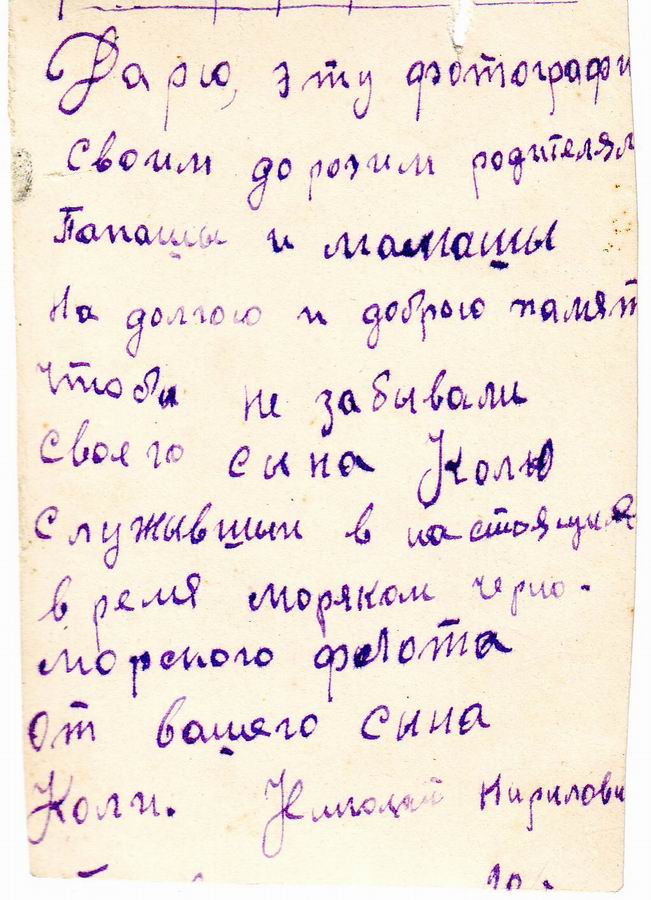 Дарю, эту фотографи
своим дорогим родителям
Папашы и мамашы
На долгою и доброю памят
чтобы не забывали
своего сына Колю
служывшии в настоящия
время моряком черно-
морского флота
От вашего сына
Коли. Николай Кирилови